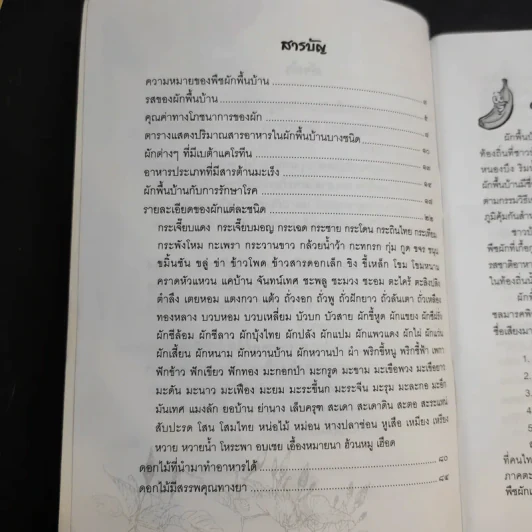 สารบัญ
ความหมายของพืชผักพื้นบ้าน
รสของผักพื้นบ้าน ๑
คุณค่าทางโภชนาการของผัก ๕
ตารางแสดงปริมาณสารอาหารในผักพื้นบ้านบางชนิด
ผักต่างๆ ที่มีเบต้าแคโรทีน
อาหารประเภทที่มีสารต้านมะเร็ง
ผักพื้นบ้านกับการรักษาโรค
รายละเอียดของผักแต่ละชนิด ๒๒
กระเจี๊ยบแดง กระเจี๊ยบมอญ กระเฉด กระชาย กระโดน กระถินไทย กระเทียม
กระพังโหม กะเพรา กระวานขาว กล้วยน้ำว้า กะทกรก กุ่ม กูด ขจร ขนุน
ขมิ้นชัน ขลู่ ข่า ข้าวโพด ข้าวสารดอกเล็ก ขิง ขี้เหล็ก โขม โขมหนาม
คราดหัวแหวน แคบ้าน จันทน์เทศ ชะพลู ชะมวง ชะอม ตะไคร้ ตะลิงปลิง
ตำลึง เตยหอม แตงกวา แต้ว ถั่วงอก ถั่วพู ถั่วฝักยาว ถั่วลันเตา ถั่วเหลือง
ทองหลาง บวบหอม บวบเหลี่ยม บัวบก บัวสาย ผักขี้หูด ผักแขยง ผักชีฝรั่ง
ผักชีล้อม ผักชีลาว ผักบุ้งไทย ผักปลัง ผักแปม ผักแพวแดง ผักไผ่ ผักแว่น
ผักเสี้ยน ผักหนาม ผักหวานบ้าน ผักหวานป่า ผำ พริกขี้หนู พริกชี้ฟ้า เพกา
ฟักข้าว ฟักเขียว ฟักทอง มะกอกป่า มะกรูด มะขาม มะเขือพวง มะเขือยาว
มะดัน มะนาว มะเฟือง มะยม มะระขี้นก มะระจีน มะรุม มะละกอ มะอึก
มันเทศ แมงลัก ยอบ้าน ย่านาง เล็บครุฑ สะเดา สะเดาดิน สะตอ สะระแหน่
สับปะรด โสน โสมไทย หน่อไม้ หม่อน หางปลาช่อน หูเสือ เหมียง เหรียง
หวาย หวายน้ำ โหระพา อบเชย เอื้องหมายนา ฮ้วนหมู เฮือด
ดอกไม้ที่นำมาทำอาหารได้ ๘๐
ดอกไม้มีสรรพคุณทางยา ๘๔
ผักพื้นบ้าน
ท้องถิ่นที่ชาว
หนองบึง ริม
ผักพื้นบ้านมีชื่
ตามกรรมวิธี
ภูมิคุ้มกัน
ชาวบ้
พืชผักที่เกื้อ
รสชาติอาหาร
ในท้องถิ่นนั้น
ผักพื้
ชลมารคพิ
ชื่อเสียงมา
1.
2.
3.
4.
5.
ที่คนไท
ภาคตะ
พืชผัก